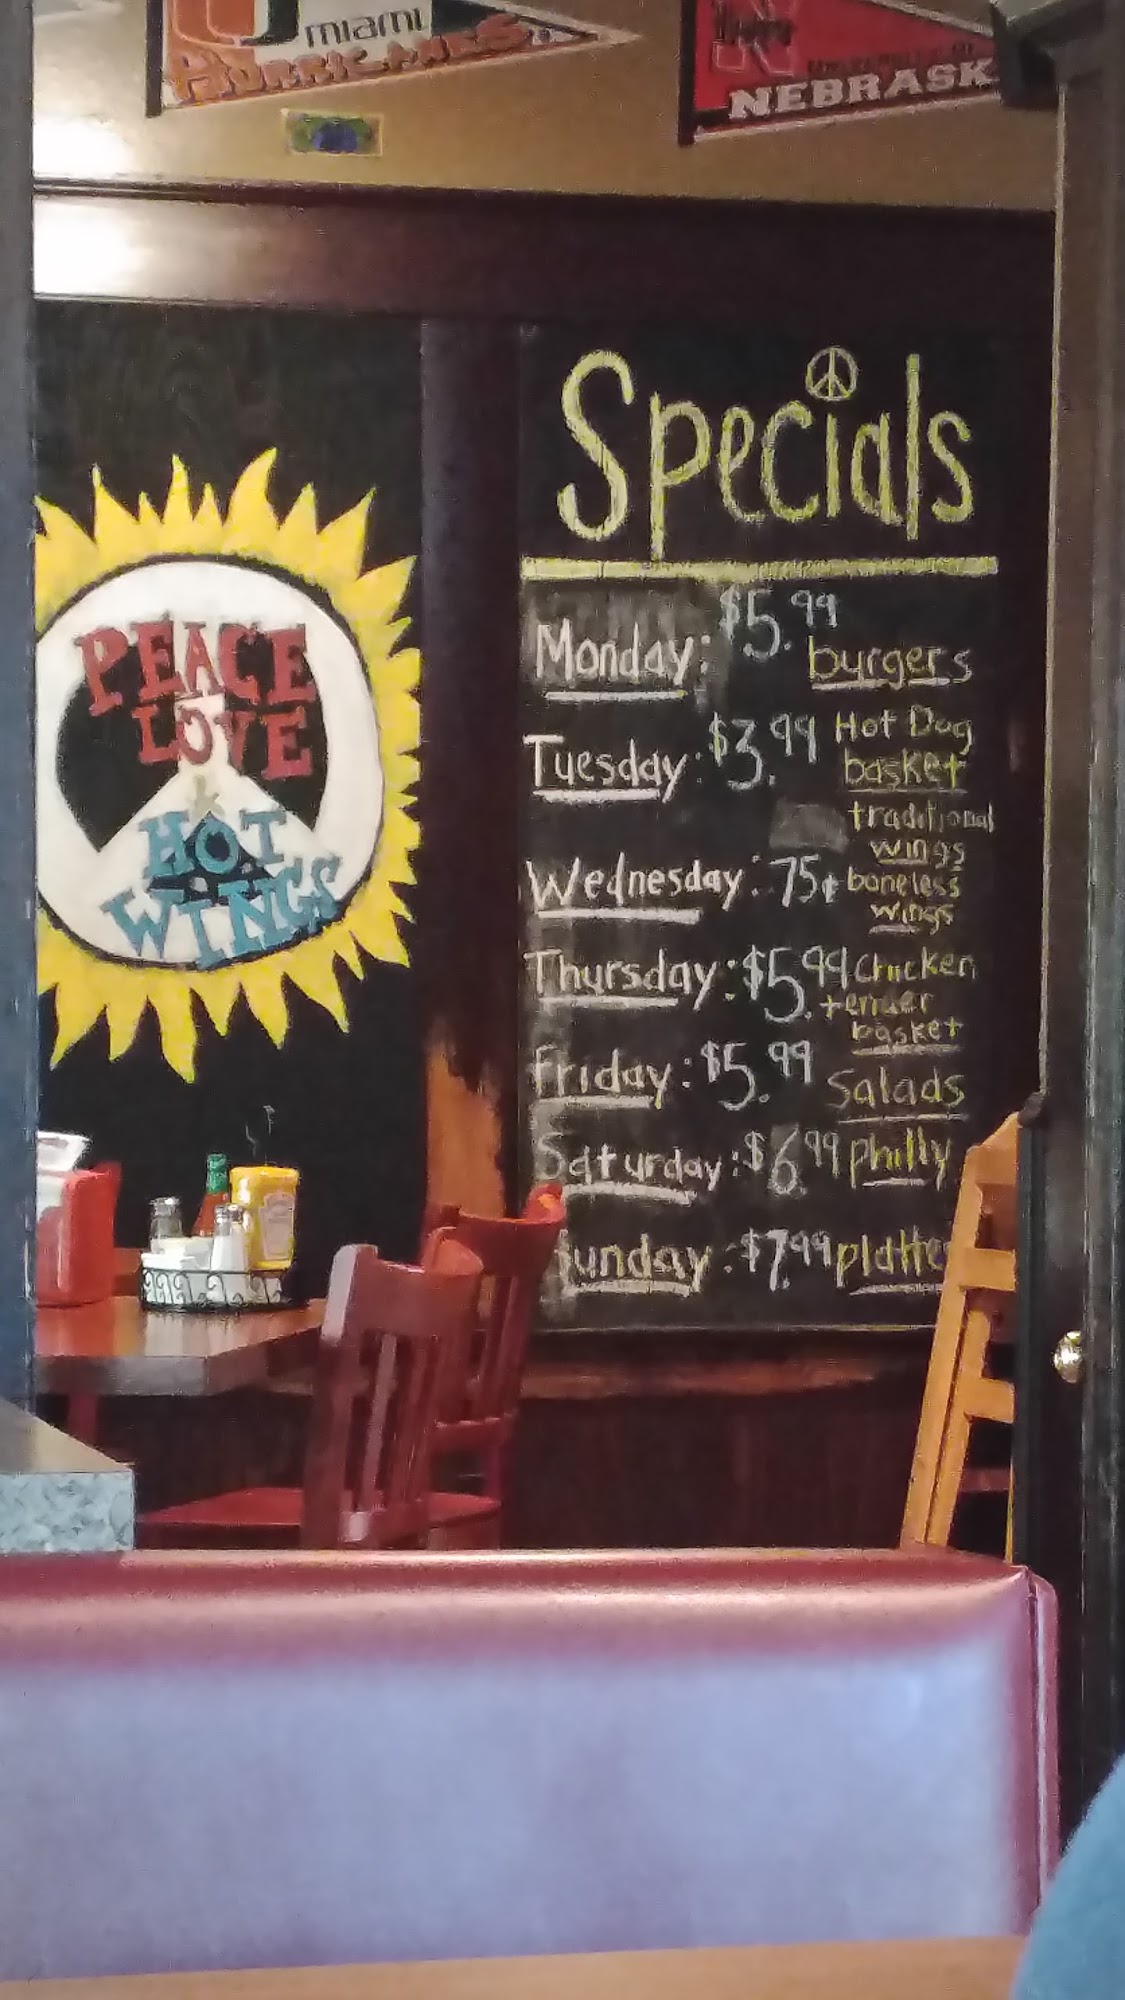 miami
HURRICANES
NEBRASK
PEACE
LOVE
&
HOT
WINGS
Specials
Monday: $5.99 burgers
Tuesday: $3.99 Hot Dog
basket
traditional
wings
Wednesday: 75¢ boneless
wings
Thursday: $5.99 Chicken
tender
basket
Friday: $5.99 Salads
Saturday: $6.99 philly
Sunday: $7.99 platte